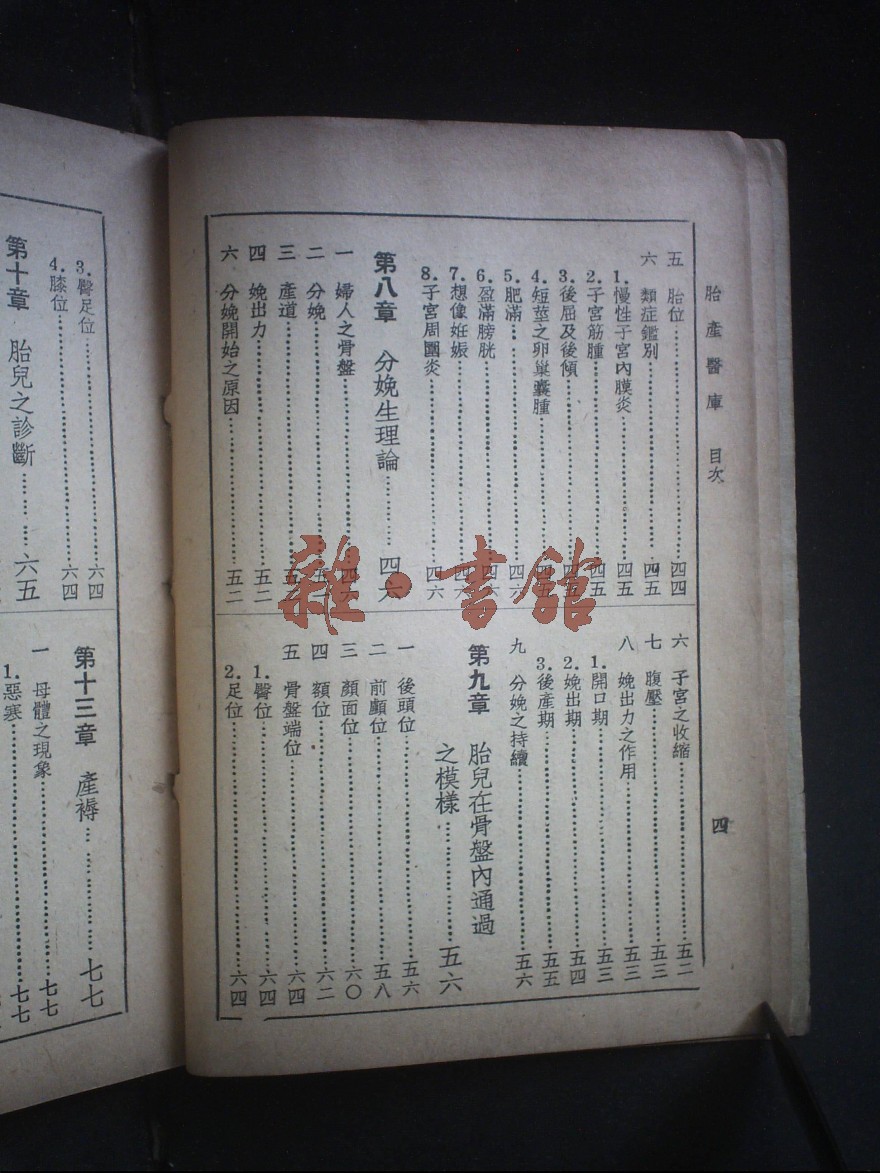 胎產醫庫 目次 四
五 胎位……四四
六 類症鑑別……四五
1.慢性子宮內膜炎……四五
2.子宮筋腫……四五
3.後屈及後傾……四五
4.短莖之卵巢囊腫……四五
5.肥滿……四六
6.盈滿膀胱……四六
7.想像妊娠……四六
8.子宮周圍炎……四六
第八章 分娩生理論……四六
一 婦人之骨盤……四六
二 分娩……五
三 產道……五
四 娩出力……五二
六 分娩開始之原因……五二
六 子宮之收縮……五二
七 腹壓……五三
八 娩出力之作用……五三
1.開口期……五三
2.娩出期……五四
3.後產期……五五
九 分娩之持續……五六
第九章 胎兒在骨盤內通過
之模樣……五六
一 後頭位……五六
二 前顱位……五八
三 顏面位……六〇
四 額位……六二
五 骨盤端位……六四
1.臀位……六四
2.足位……六四
3.臀足位……六四
4.膝位……六四
第十章 胎兒之診斷……六五
第十三章 產褥……七七
一 母體之現象……七七
1.惡寒……七七
雜·書館